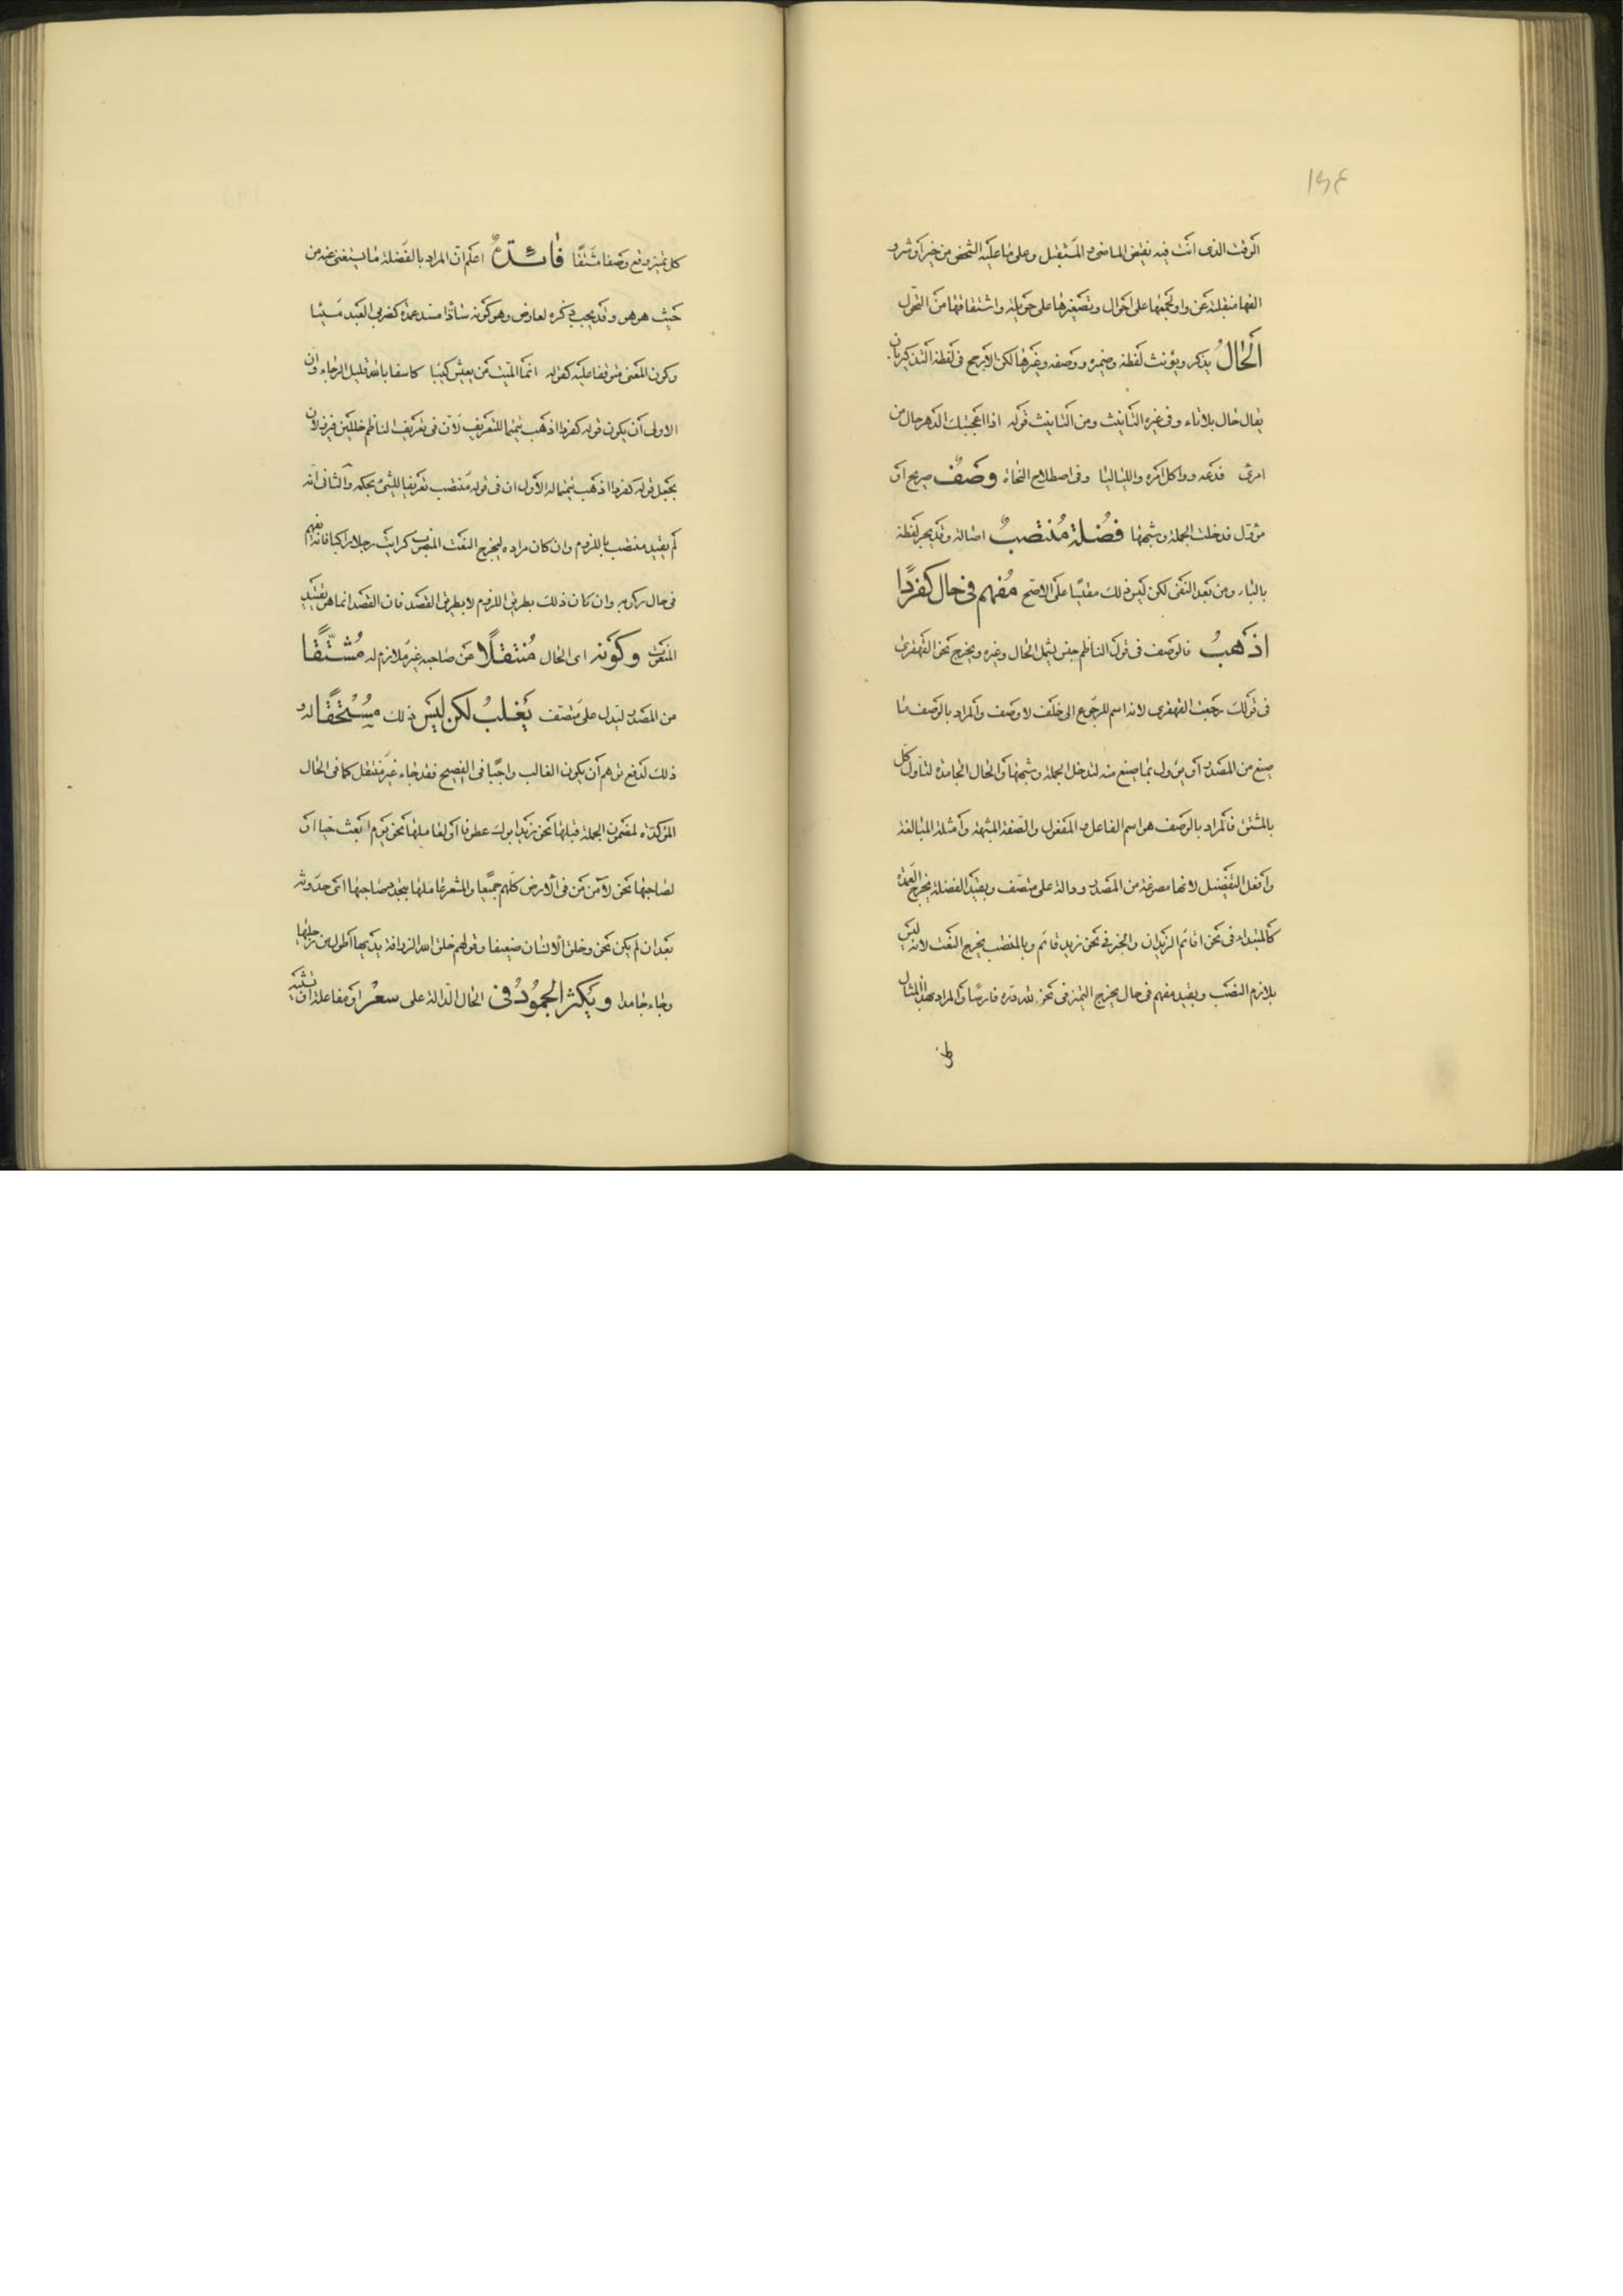 ١٩٤
الوقت الذى انت فيه نقيض الماضى والمستقبل وعلى ما عليه الشخص من خير او شر و
الفها منقلبة عن واو لجمعها على احوال وتصغيرها على حويلة واشتقاقها من التحول
الحال يذكر ويؤنث لفظه وضميره ووصفه وغيرها لكن الارجح فى لفظه التذكير بان
يقال حال بلا تاء وفى غيره التانيث ومن التانيث قوله اذا اعجبتك الدهر حال من
امرئ فدعه وواكل امره واللياليا وفى اصطلاح النحاة وصف صريح او
مؤول فدخلت الجملة وشبهها فضلة منتصب اصالة وقد يجر لفظه
بالباء ومن بعد النفى لكن ليس ذلك مقيسا على الاصح مفهم فى حال كفردا
اذهب فالوصف فى قول الناظم جنس يشمل الحال وغيره ويخرج نحو القهقرى
فى قولك رجعت القهقرى لانه اسم للرجوع الى خلف لا وصف والمراد بالوصف ما
صيغ من المصدر او مؤول بما صيغ منه لتدخل الجملة وشبهها والحال الجامدة لتاول كل
بالمشتق فالمراد بالوصف هو اسم الفاعل والمفعول والصفة المشبهة وامثلة المبالغة
وافعل التفضيل لانها مصوغة من المصدر ودالة على متصف وبقيد الفضلة يخرج العمدة
كالمبتداء فى نحو اقائم الزيدان والخبر فى نحو زيد قائم وبالمنتصب يخرج النعت لانه ليس
بلازم النصب وبقيد مفهم فى حال يخرج التميز فى نحو لله دره فارسا والمراد بهذا المثال
كل تميز وقع وصفا مشتقا فائدة اعلم ان المراد بالفضلة ما يستغنى عنه من
حيث هو هو وقد يجب ذكره لعارض وهو كونه سادا مسد عمدة كضربي العبد مسيئا
وكون المعنى متوقفا عليه كقوله انما الميت من يعيش كئيبا كاسفا باله قليل الرجاء وان
الاولى ان يكون قوله كفردا اذهب تتميما للتعريف لان فى تعريف الناظم خللين فيزولان
بجعل قوله كفردا اذهب تتميما له الاول ان فى قوله منتصب تعريفا للشئ بحكمه والثانى انه
لم يقيد منتصب باللزوم وان كان مراده ليخرج النعت المنصوب كرايت رجلا راكبا فانه يفهم
فى حال ركوبه وان كان ذلك بطريق اللزوم لا بطريق القصد فان القصد انما هو تقييد
المنعوت وكونه اى الحال منتقلا عن صاحبه غير ملازم له مشتقا
من المصدر ليدل على متصف يغلب لكن ليس ذلك مستحقا له و
ذلك لدفع توهم ان يكون الغالب واجبا فى الفصيح فقد جاء غير منتقل كما فى الحال
المؤكدة لمضمون الجملة قبلها نحو زيد ابوك عطوفا او لعاملها نحو يوم ابعث حيا او
لصاحبها نحو لآمن من فى الارض كلهم جميعا والمشعر عاملها بتجدد صاحبها اى حدوثه
بعد ان لم يكن نحو وخلق الانسان ضعيفا وقولهم خلق الله الزرافة يديها اطول من رجليها
وجاء جامدا ويكثر الجمود فى الحال الدالة على سعر او مفاعلة او